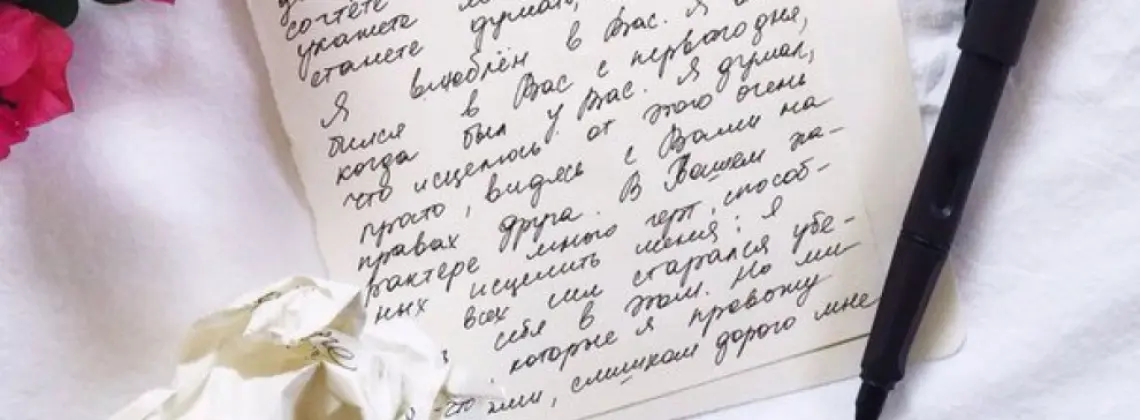 сочтёте
укажете
станете думать,
Я влюблён в Вас. Я
бился в Вас с первого дня,
когда был у Вас. Я думал,
что исцелюсь от этого очень
просто, видясь с Вами на
правах друга. В Вашем ха-
рактере много черт, способ-
ных исцелить меня; я
всех сил старался убе-
себя в этом. Но ми-
которые я провожу
слишком дорого мне